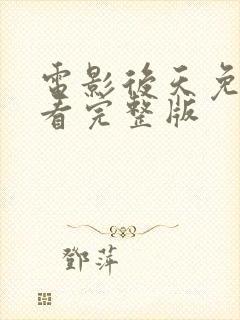 電影後天免
看完整版
鄧萍